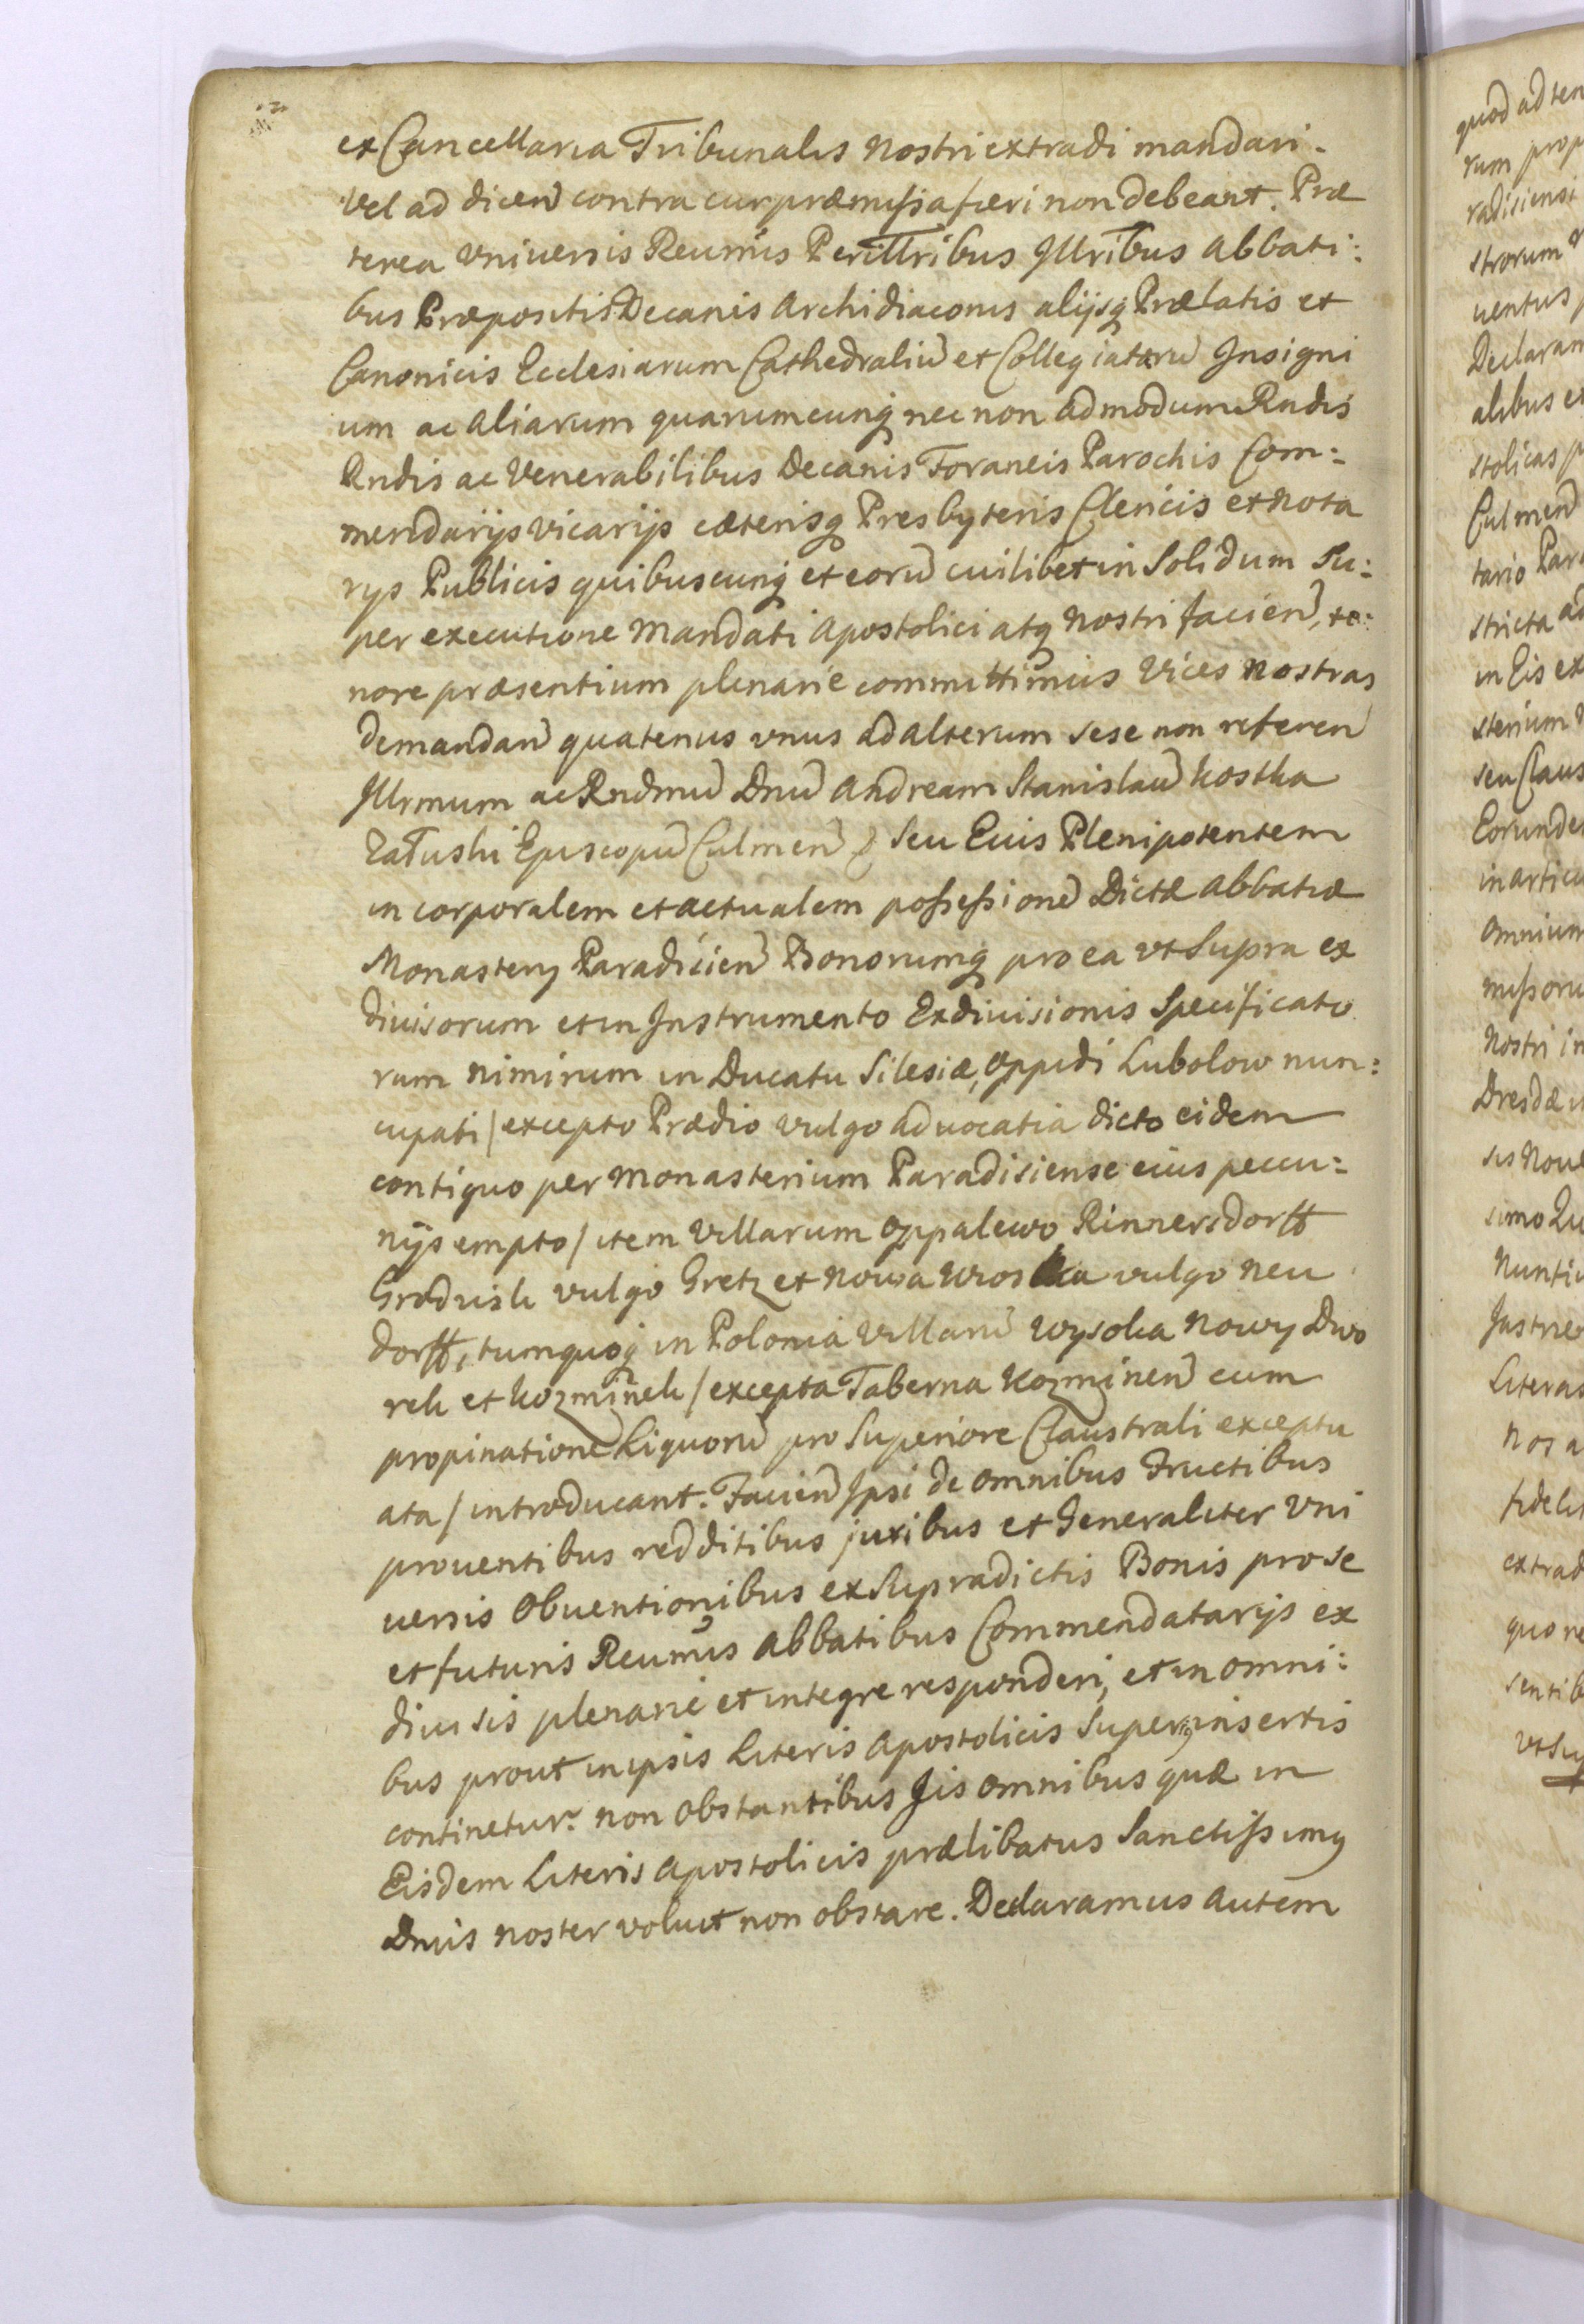 ex Cancellaria Tribunalis Nostri extradi mandari.
Vel ad dicen contra cur præmissa fieri non debeant. Præ
terea Vniuersis Reumis Perilltribus Illribus Abbati:
bus Præpositis Decanis Archidiaconis alijsq Prælatis et
Canonicis Ecclesiarum Cathedraliu et Collegiataru Insigni
um ac Aliarum quarumcunq nec non Admodum Rndis
Rndis ac Venerabilibus Decanis Foraneis Parochis Com:
mendarijs Vicarijs cæterisq Presbyteris Clericis et Nota
rijs Publicis quibuscunq et eoru cuilibet in Solidum Su:
per executione Mandati Apostolici atq Nostri facien, te:
nore præsentium plenarie committimus Vices Nostras
Demandan quatenus vnus ad alterum sese non referen
Illrmum ac Rndmu Dnu Andream Stanislau Kostka
Załuski Episcopu Culmen Seu Euis Plenipotentem
in corporalem et actualem possessione Dictæ Abbatiæ
Monastery Paradicien Bonorumq pro ea vt Supra ex
diuisorum et in Instrumento Exdiuisionis Specificato
rum nimirum in Ducatu Silesiæ, Oppidi Lubolow nun:
cupati / excepto Prædio vulgo aduocatia dicto eidem
contiguo per Monasterium Paradisiense eius pecu:
nijs empto / item Villarum Oppalewo Rinnersdorff
Grodzisk vulgo Gretz et Nowa vulgo neu
dorff, tumquoq in Polonia Villaru Wysoka Nowy Dwo
rek et Kozminek / excepta Taberna Kozminen cum
propinatione Liquoru pro Superiore Claustrali exceptu
ata / introducant. Facien Ipsi de omnibus Fructibus
prouentibus redditibus juribus et Generaliter Vni
uersis Obuentionibus ex Supradictis Bonis pro se
et futuris Reumis Abbatibus Commendatarijs ex
diuisis plenarie et integre responderi, et in omni:
bus prout in ipsis Literis Apostolicis Superius insertis
continetur. Non Obstantibus Jis omnibus quæ in
Eisdem Literis Apostolicis prælibatus Sanctissimq
Dnus Noster voluit non obstare. Declaramus Autem
quod ad ten
rum prop
radisiensi
strorum
uentus
Declaram
alibus et
stolicas
Culmen
tario Par
stricta ad
in Eis ex
sterium
seu Claus
Eorunde
in articu
omnium
missoru
Nostri in
Dresdæ
sis Noue
simo
Nuntiu
Literas
Nos a
fideli
extrad
quo ne
sentib
vt Su